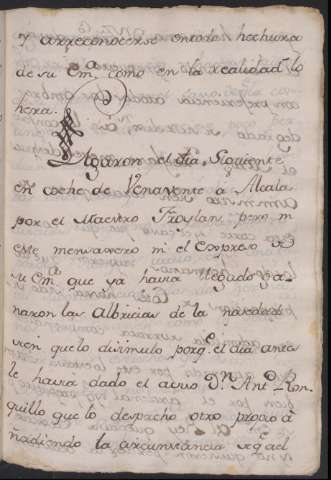 y a reconocerse en todo hechura
de su Em.ª como en la realidad lo
hera.
Llegaron el dia siguiente
en coche de Venavente a Alcala
por el Maestro Froylan, pero ni
este mensaxero ni el expreso de
su Em.ª que ya havia llegado ga-
naron las Albricias de la novedad
vien que lo disimulo porq.e el dia antes
le havia dado el aviso D.n Ant.o Ron-
quillo que lo despacho otro propio a-
ñadiendo la circunstancia